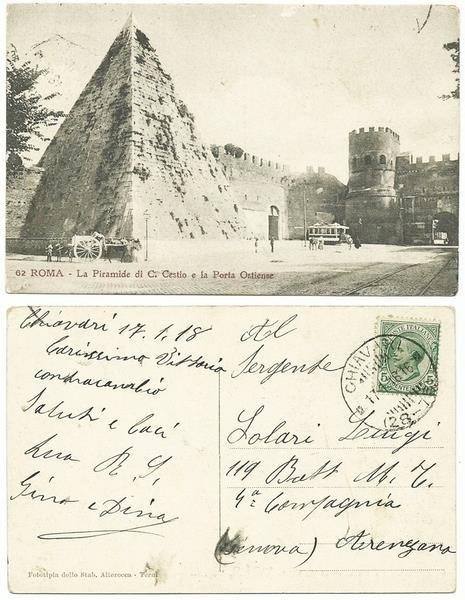 62 ROMA - La Piramide di C. Cestio e la Porta Ostiense
Chiavari 17.1.18
Carissimo Vittorio
contracambio
Saluti e baci
Gino e Dina
Al
Sergente
Solari Luigi
119 Batt M. T.
4ª Compagnia
(Genova) Arenzano
CHIAVARI
POSTE ITALIANE
5 5
(28)
Fototipia dello Stab. Alterocca - Terni